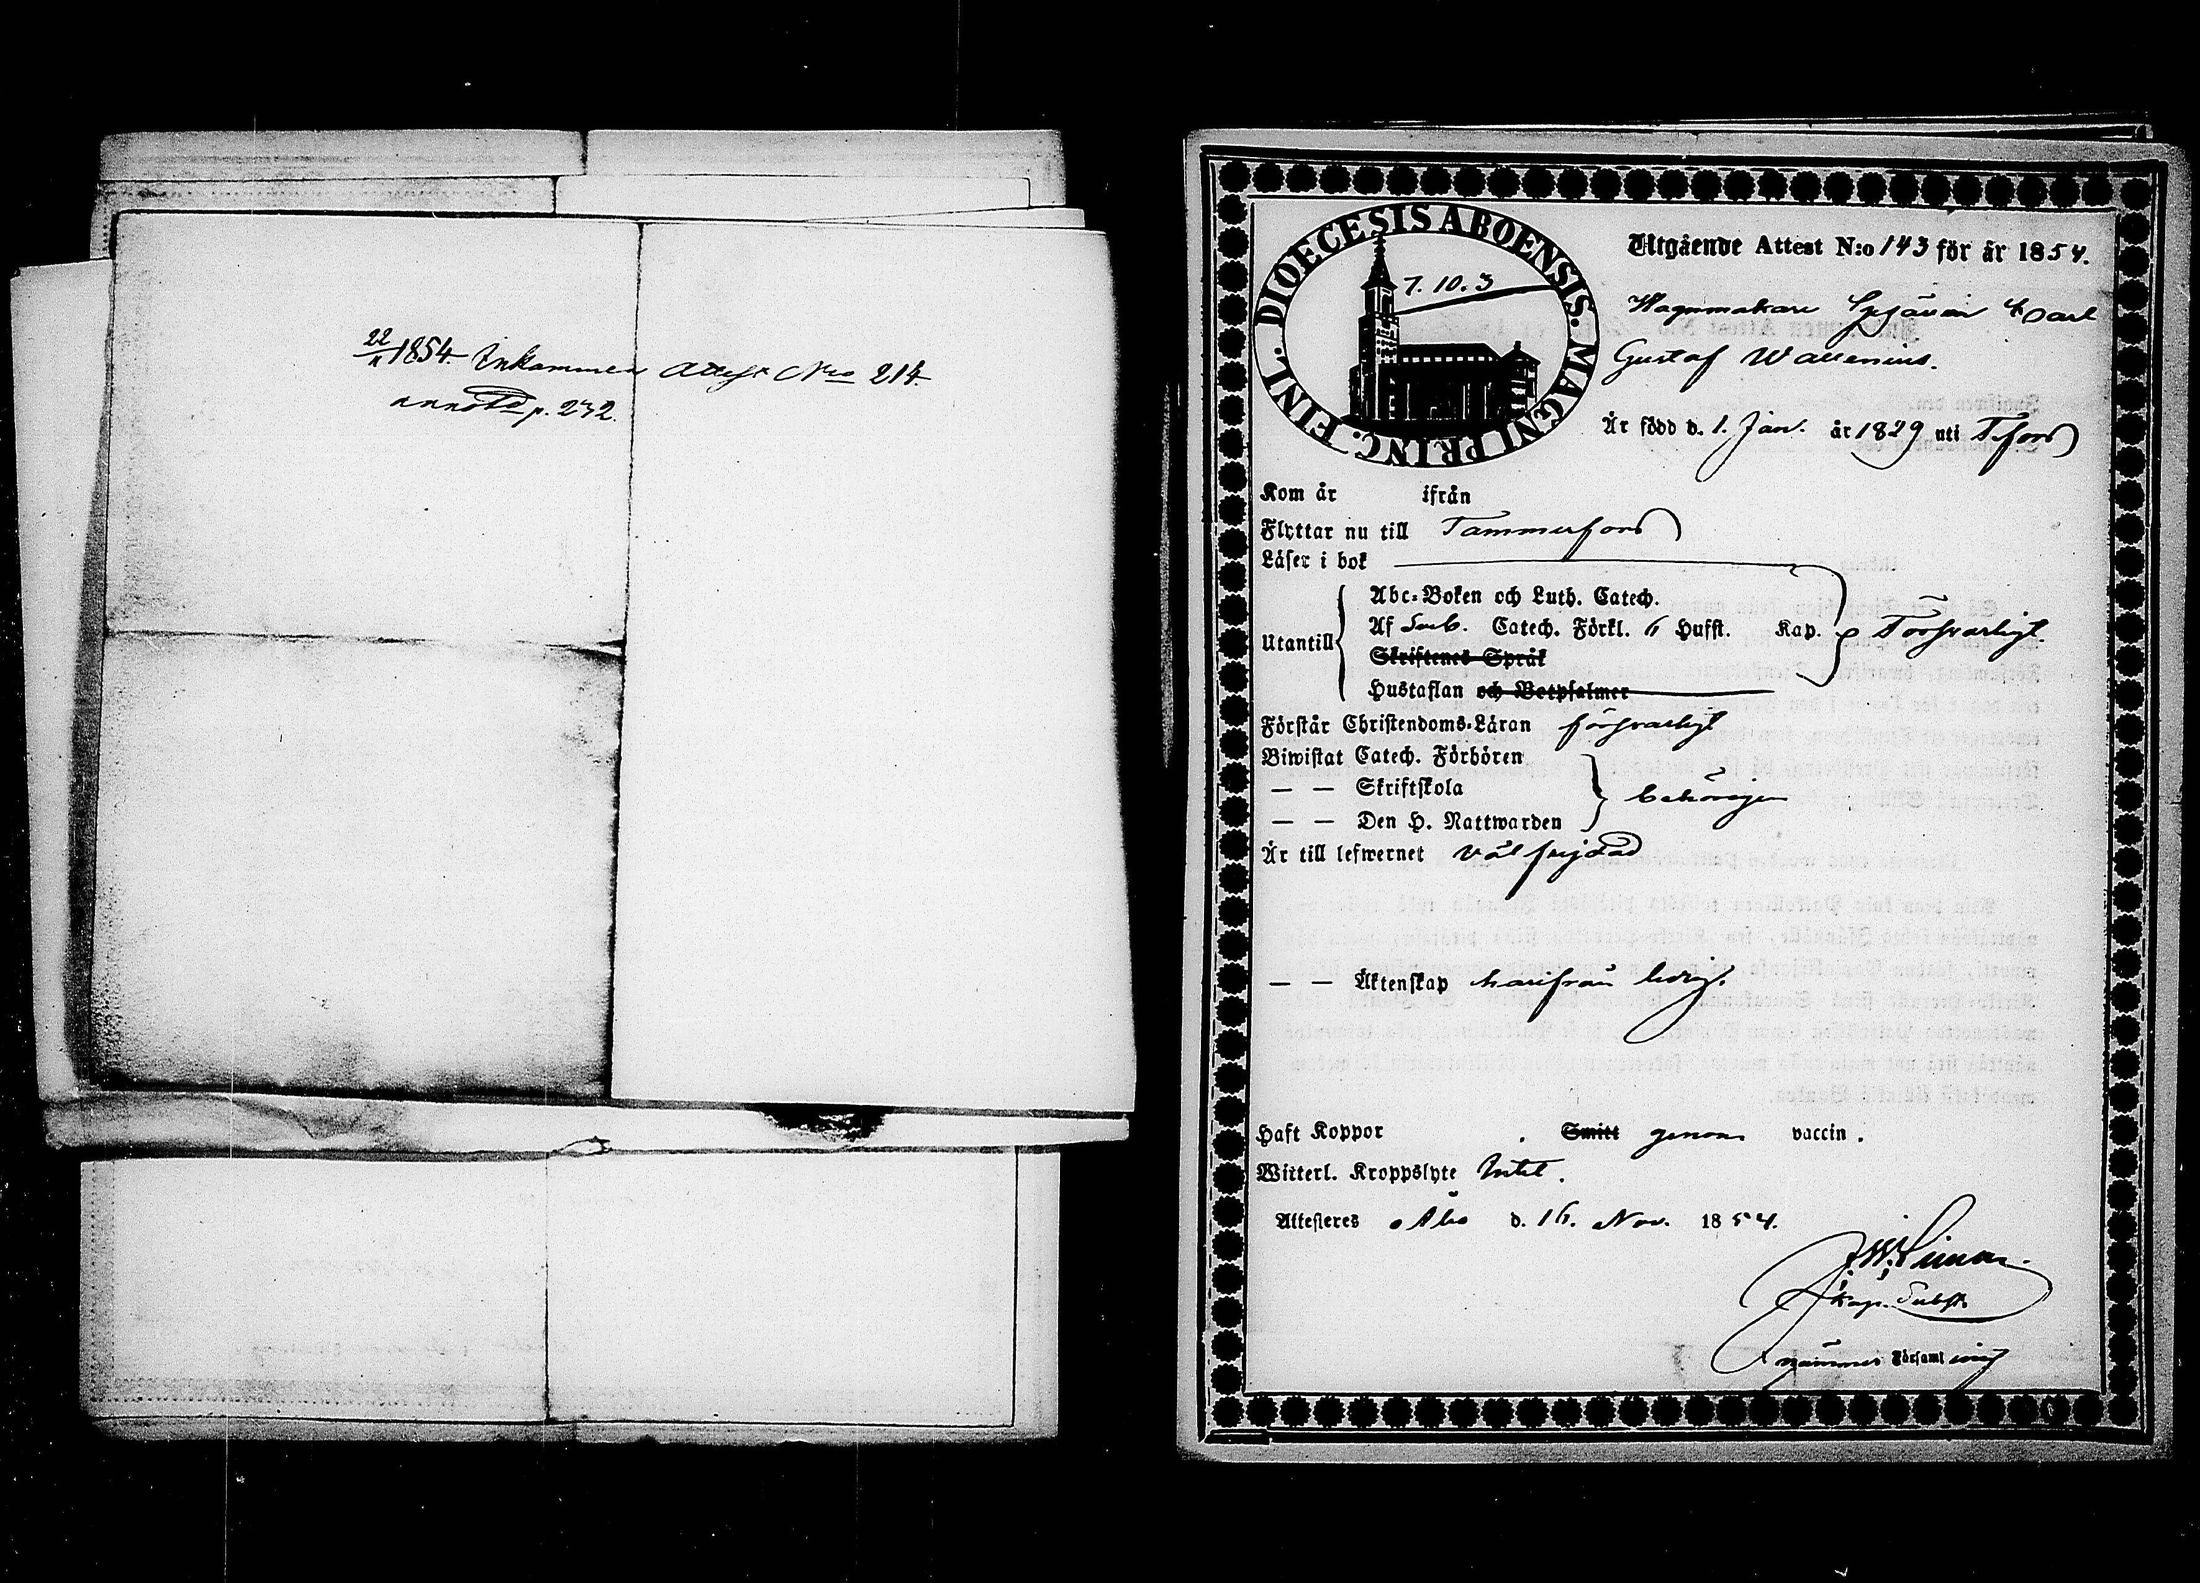 22/11 1854. Inkommen Attest Nro 214.
annoterad p. 232.
DIOECESIS ABOENSIS. MAGNI PRINC. FINL.
7. 10. 3
Utgående Attest N:o 143 för år 1854.
Wagnmakare Carl
Gustaf Wallenius.
Är född d. 1. Jan. år 1829 uti T.fors
Kom år ifrån
Flyttar nu till Tammerfors
Läser i bok
Abc-Boken och Luth. Catech.
Utantill Af Sveb. Catech. Förkl. 6 Hufst. Kap. Försvarligt.
Skriftenes Språk
Hustaflan och Botpsalmer
Förstår Christendoms-Läran försvarligt
Biwistat Catech. Förhören
— — Skriftskola behörigen
— — Den H. Nattwarden
Är till lefwernet väl frejdad
— — Äktenskap härifrån ledig.
Haft Koppor . Smitt genom vaccin.
Witterl. Kroppslyte Intet.
Attesteres Åbo d. 16. Nov. 1854.
Kap. Subst.
Församl